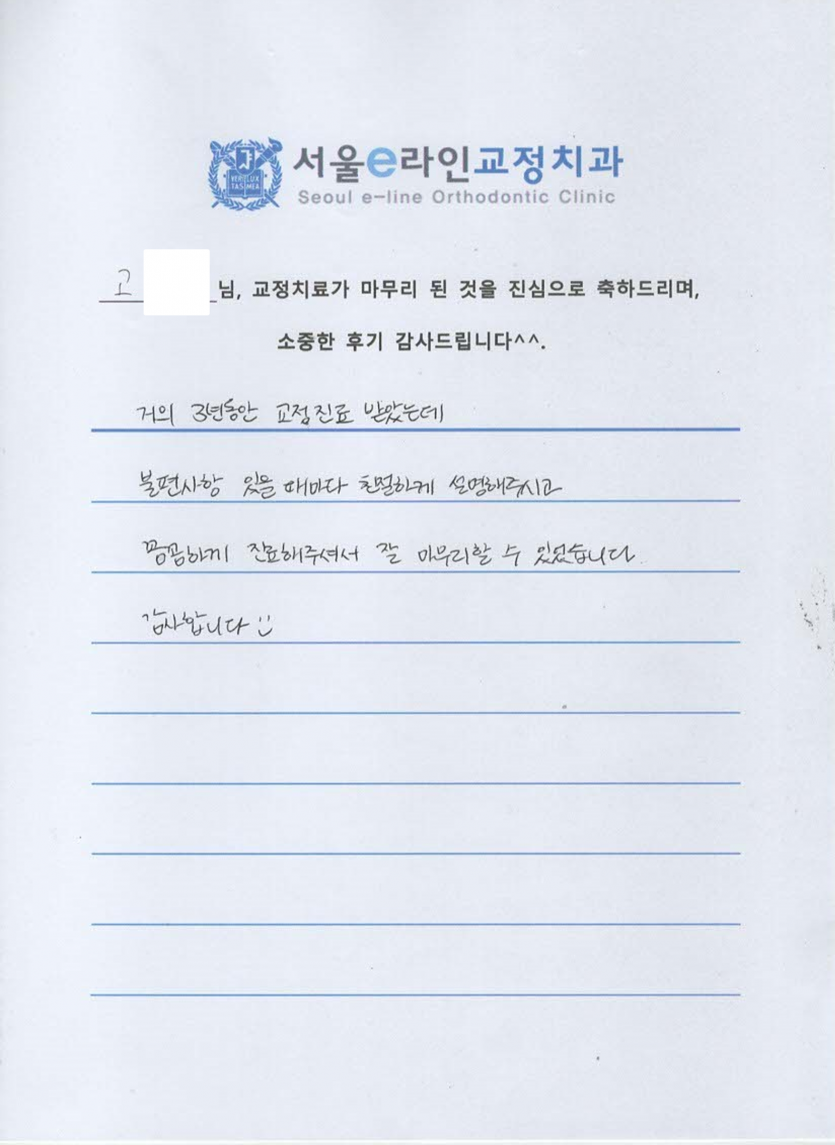 서울e라인교정치과
Seoul e-line Orthodontic Clinic
고 님, 교정치료가 마무리 된 것을 진심으로 축하드리며,
소중한 후기 감사드립니다^^.
거의 3년동안 교정진료 받았는데
불편사항 있을 때마다 친절하게 설명해주시고
꼼꼼하게 진료해주셔서 잘 마무리할 수 있었습니다
감사합니다 :)